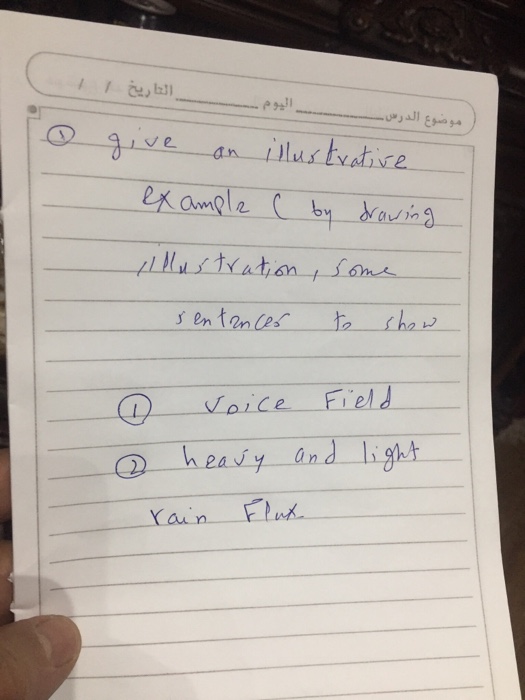 موضوع الدرس اليوم التاريخ / /
① give an illustrative
example ( by drawing
illustration, some
sentences to show
① Voice Field
② heavy and light
rain Flux